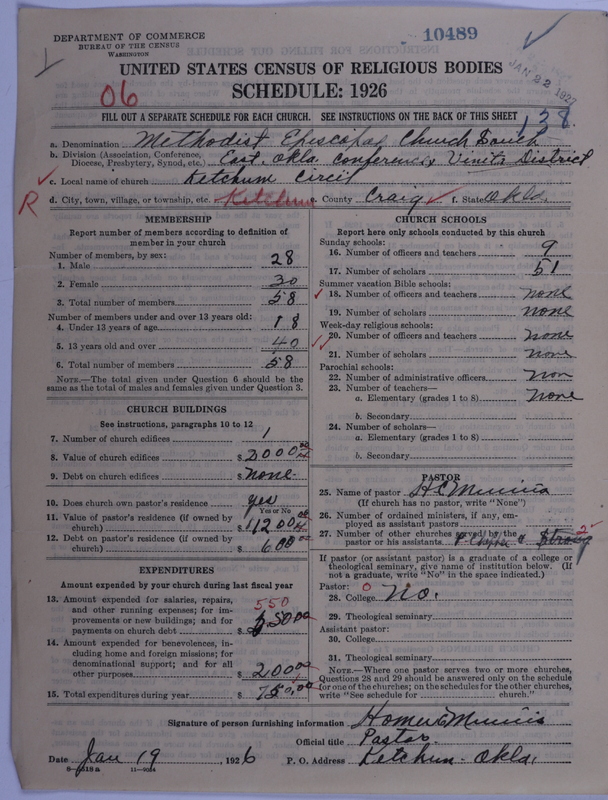 DEPARTMENT OF COMMERCE
BUREAU OF THE CENSUS
WASHINGTON
10489
JAN 22 1927
UNITED STATES CENSUS OF RELIGIOUS BODIES
06
SCHEDULE: 1926
FILL OUT A SEPARATE SCHEDULE FOR EACH CHURCH. SEE INSTRUCTIONS ON THE BACK OF THIS SHEET
138
a. Denomination Methodist Episcopal Church South
b. Division (Association, Conference, Diocese, Presbytery, Synod, etc.) East Okla. conference, Vinita District
c. Local name of church Ketchum Circit
R d. City, town, village, or township, etc. Ketchum e. County Craig f. State Okla.
MEMBERSHIP
Report number of members according to definition of member in your church
Number of members, by sex:
1. Male 28
2. Female 30
3. Total number of members 58
Number of members under and over 13 years old:
4. Under 13 years of age 18
5. 13 years old and over 40
6. Total number of members 58
NOTE.—The total given under Question 6 should be the same as the total of males and females given under Question 3.
CHURCH BUILDINGS
See instructions, paragraphs 10 to 12
7. Number of church edifices 1
8. Value of church edifices $2000.00
9. Debt on church edifices $none
10. Does church own pastor's residence? yes
Yes or No
11. Value of pastor's residence (if owned by church) $1200.00
12. Debt on pastor's residence (if owned by church) $600
EXPENDITURES
Amount expended by your church during last fiscal year
13. Amount expended for salaries, repairs, and other running expenses; for improvements or new buildings; and for payments on church debt $ 550
14. Amount expended for benevolences, including home and foreign missions; for denominational support; and for all other purposes $200.00
15. Total expenditures during year $750.00
CHURCH SCHOOLS
Report here only schools conducted by this church
Sunday schools:
16. Number of officers and teachers 9
17. Number of scholars 51
Summer vacation Bible schools:
18. Number of officers and teachers none
19. Number of scholars none
Week-day religious schools:
20. Number of officers and teachers none
21. Number of scholars none
Parochial schools:
22. Number of administrative officers non
23. Number of teachers—
a. Elementary (grades 1 to 8) none
b. Secondary
24. Number of scholars—
a. Elementary (grades 1 to 8)
b. Secondary
PASTOR
25. Name of pastor H C
(If church has no pastor, write "None")
26. Number of ordained ministers, if any, employed as assistant pastors
27. Number of other churches served by the pastor or his assistants 2
If pastor (or assistant pastor) is a graduate of a college or theological seminary, give name of institution below. (If not a graduate, write "No" in the space indicated.)
Pastor: 0
28. College No.
29. Theological seminary
Assistant pastor:
30. College
31. Theological seminary
NOTE.—Where one pastor serves two or more churches, Questions 28 and 29 should be answered only on the schedule for one of the churches; on the schedules for the other churches, write "See schedule for church."
Signature of person furnishing information Homer
Official title Pastor
Date Jan 19, 1926 P. O. Address Ketchum. Okla.
8—518a 11—9054